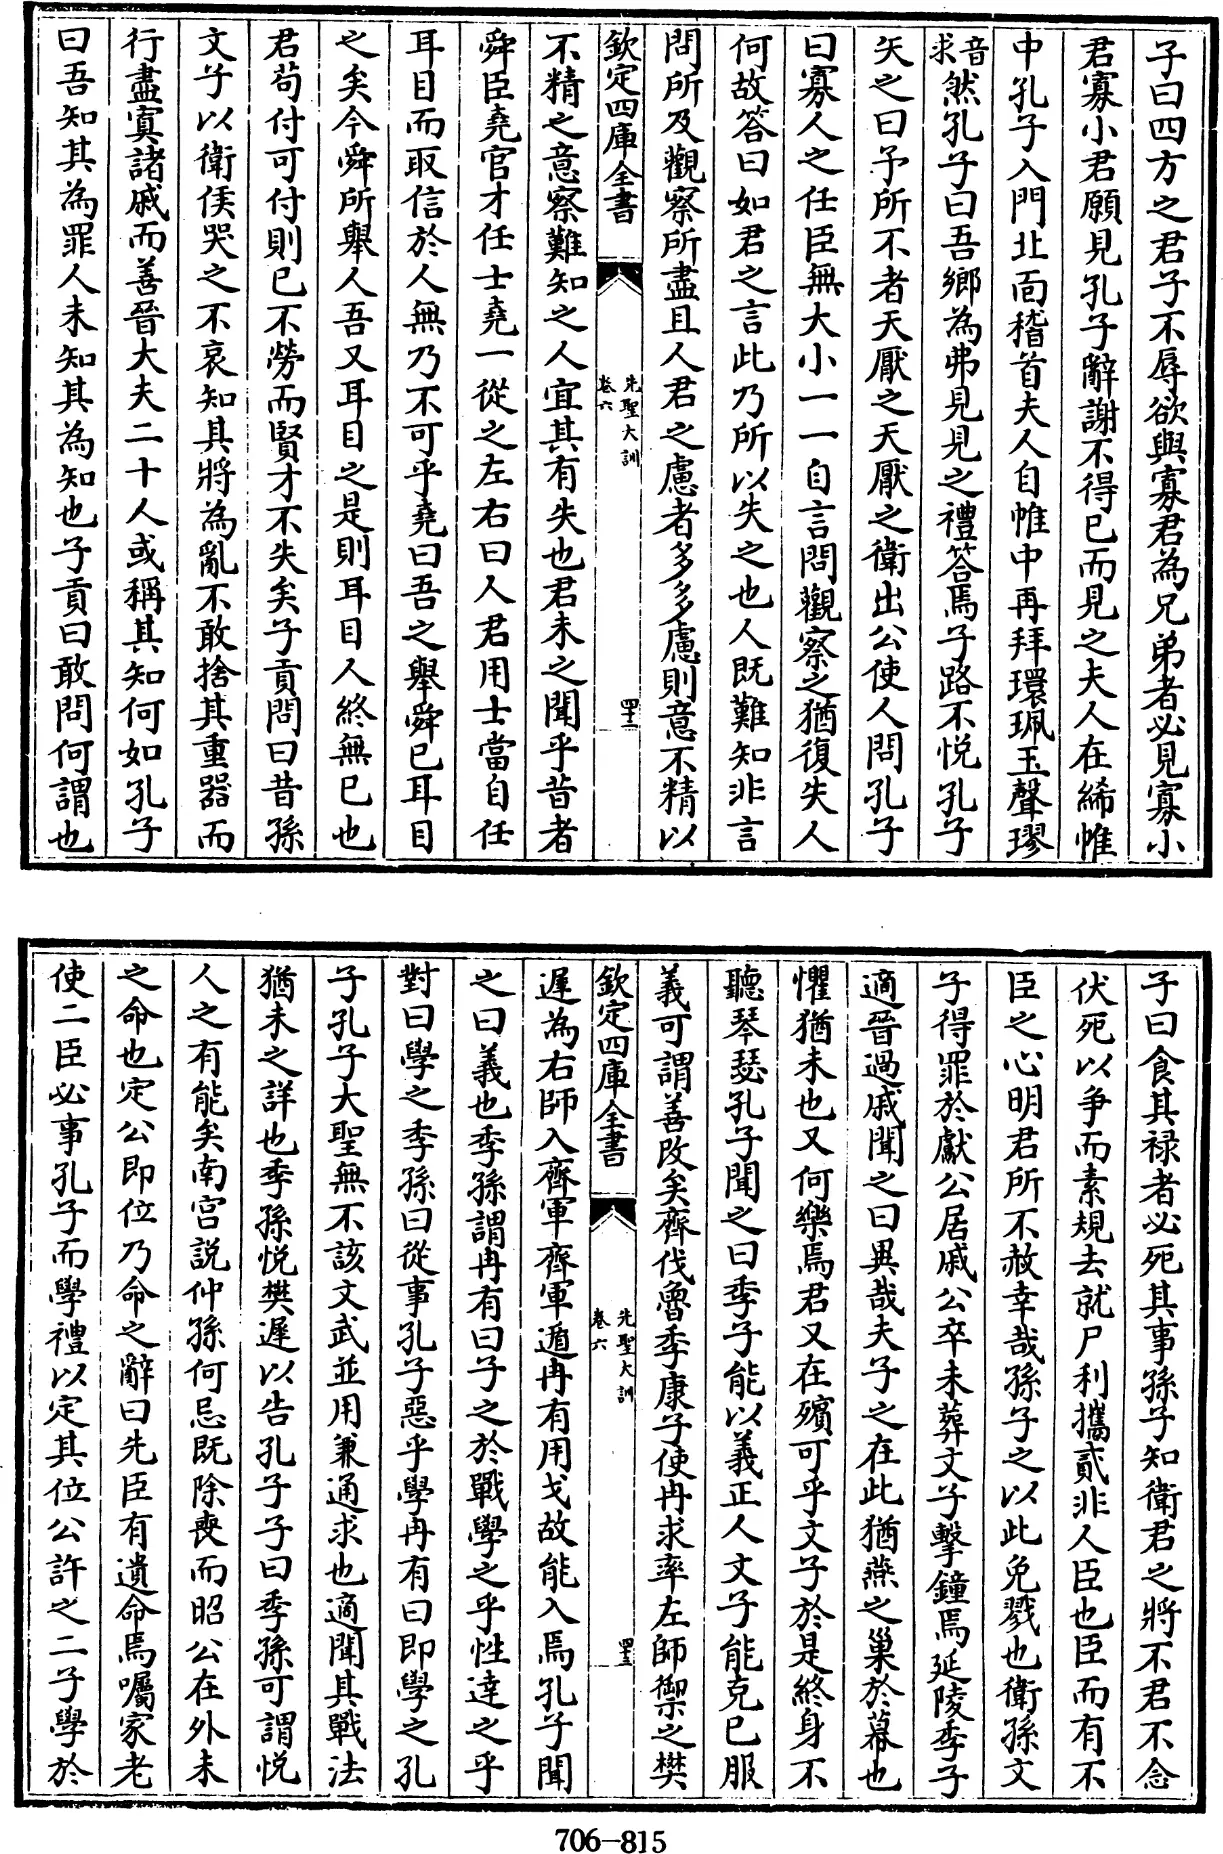 子曰四方之君子不辱欲與寡君為兄弟者必見寡小
君寡小君願見孔子辭謝不得已而見之夫人在絺帷
中孔子入門北面稽首夫人自帷中再拜環珮玉聲璆
音求然孔子曰吾鄉為弗見見之禮答焉子路不悅孔子
矢之曰予所不者天厭之天厭之衛出公使人問孔子
曰寡人之任臣無大小一一自言問觀察之猶復失人
何故答曰如君之言此乃所以失之也人既難知非言
問所及觀察所盡且人君之慮者多多慮則意不精以
欽定四庫全書
先聖大訓
卷六
四十二
不精之意察難知之人宜其有失也君未之聞乎昔者
舜臣堯官才任士堯一從之左右曰人君用士當自任
耳目而取信於人無乃不可乎堯曰吾之舉舜已耳目
之矣今舜所舉人吾又耳目之是則耳目人終無已也
君苟付可付則已不勞而賢才不失矣子貢問曰昔孫
文子以衛侯哭之不哀知其將為亂不敢捨其重器而
行盡寘諸戚而善晉大夫二十人或稱其知何如孔子
曰吾知其為罪人未知其為知也子貢曰敢問何謂也
子曰食其祿者必死其事孫子知衛君之將不君不念
伏死以爭而素規去就尸利攜貳非人臣也臣而有不
臣之心明君所不赦幸哉孫子之以此免戮也衛孫文
子得罪於獻公居戚公卒未葬文子擊鐘焉延陵季子
適晉過戚聞之曰異哉夫子之在此猶燕之巢於幕也
懼猶未也又何樂焉君又在殯可乎文子於是終身不
聽琴瑟孔子聞之曰季子能以義正人文子能克己服
義可謂善改矣齊伐魯季康子使冉求率左師禦之樊
欽定四庫全書
先聖大訓
卷六
四十三
遲為右師入齊軍齊軍遁冉有用戈故能入焉孔子聞
之曰義也季孫謂冉有曰子之於戰學之乎性達之乎
對曰學之季孫曰從事孔子惡乎學冉有曰即學之孔
子孔子大聖無不該文武並用兼通求也適聞其戰法
猶未之詳也季孫悅樊遲以告孔子子曰季孫可謂悅
人之有能矣南宮說仲孫何忌既除喪而昭公在外未
之命也定公即位乃命之辭曰先臣有遺命焉囑家老
使二臣必事孔子而學禮以定其位公許之二子學於
706-815